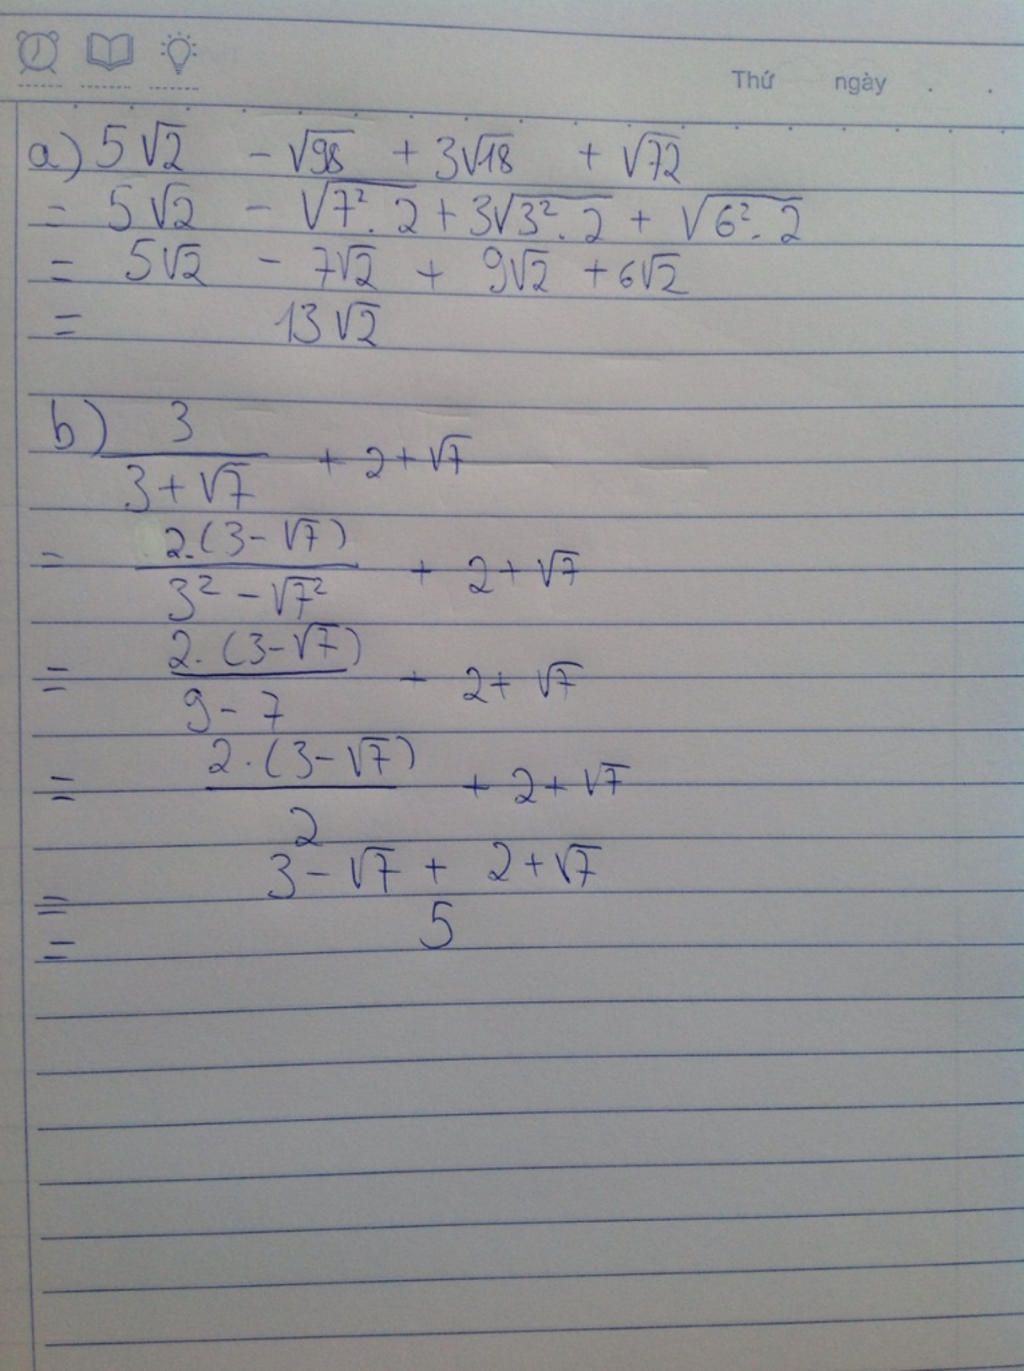 Thứ ngày . .
a) 5√2 - √98 + 3√18 + √72
= 5√2 - √7². 2 + 3√3². 2 + √6². 2
= 5√2 - 7√2 + 9√2 + 6√2
= 13√2
b) 3/(3+√7) + 2+√7
= 2.(3-√7)/(3² - √7²) + 2+√7
= 2.(3-√7)/(9-7) + 2+√7
= 2.(3-√7)/2 + 2+√7
= 3-√7 + 2+√7
= 5